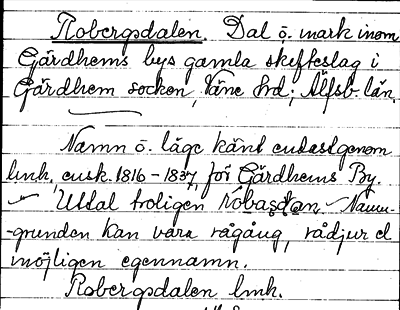 Robergsdalen. Dal o. mark inom
Gärdhems bys gamla skifteslag i
Gärdhem socken, Väne hrd; Älfsb. län.
Namn o. läge känt endast genom
lmh, ensk. 1816-1837, för Gärdhems By.
Uttal troligen Róbasdan. Namn-
-grunden kan vara rågång, rådjur el
möjligen egennamn.
Robergsdalen lmh.